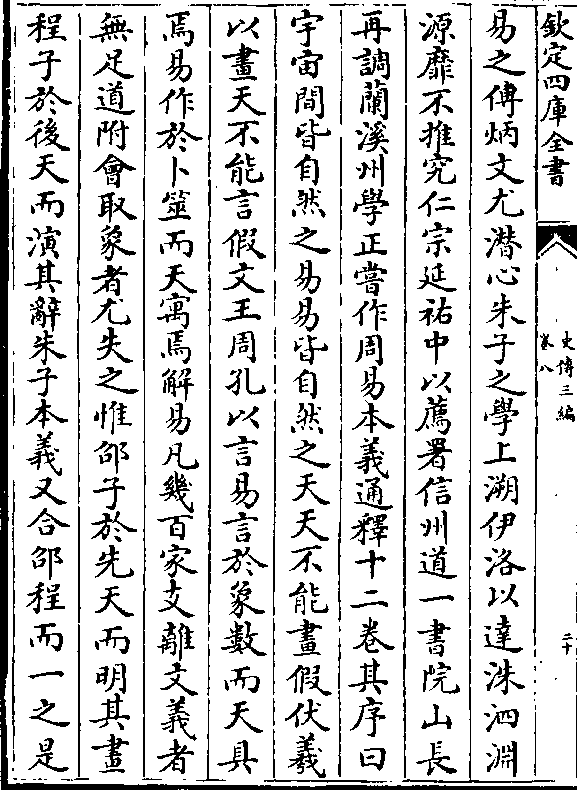 欽定四庫全書
史傳三編
卷八
二十
易之傳炳文尤潛心朱子之學上溯伊洛以達洙泗淵
源靡不推究仁宗延祐中以薦署信州道一書院山長
再調蘭溪州學正嘗作周易本義通釋十二卷其序曰
宇宙間皆自然之易易皆自然之天天不能畫假伏羲
以畫天不能言假文王周孔以言易言於象數而天具
焉易作於卜筮而天寓焉解易凡幾百家支離文義者
無足道附會取象者尤失之惟邵子於先天而明其畫
程子於後天而演其辭朱子本義又合邵程而一之是